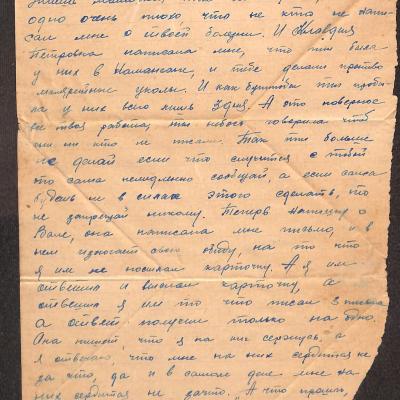 одно очень плохо, что не кто не напи-
сал мне о твоей болезни. И Клавдия
Петровна написала мне, что ты была
у них в Намангане, и тебе делали противо
малярийные уколы. И как будто бы ты пробы-
ла у них всего лишь 3 дня. А это наверное
все твоя работа, ты небось говорила чтоб
они ни кто не писали. Так ты больше
не делай если что случится с тобой
то сама немедленно сообщай, а если сама
будешь не в силах этого сделать, то
не запрещай никому. Теперь напишу о
Вале, она написала мне письмо, и в
нем излагает свою обиду, на то что
я им не посылал карточку. А я им
ответил и выслал карточку, а
ответил я им то что писал 3 письма
а ответ получил только на одно.
Она пишет, что я на них сержусь, а
я отвечаю, что мне на них сердится не
за что, да и в самом деле мне на
них сердится не за что. А что прошло,